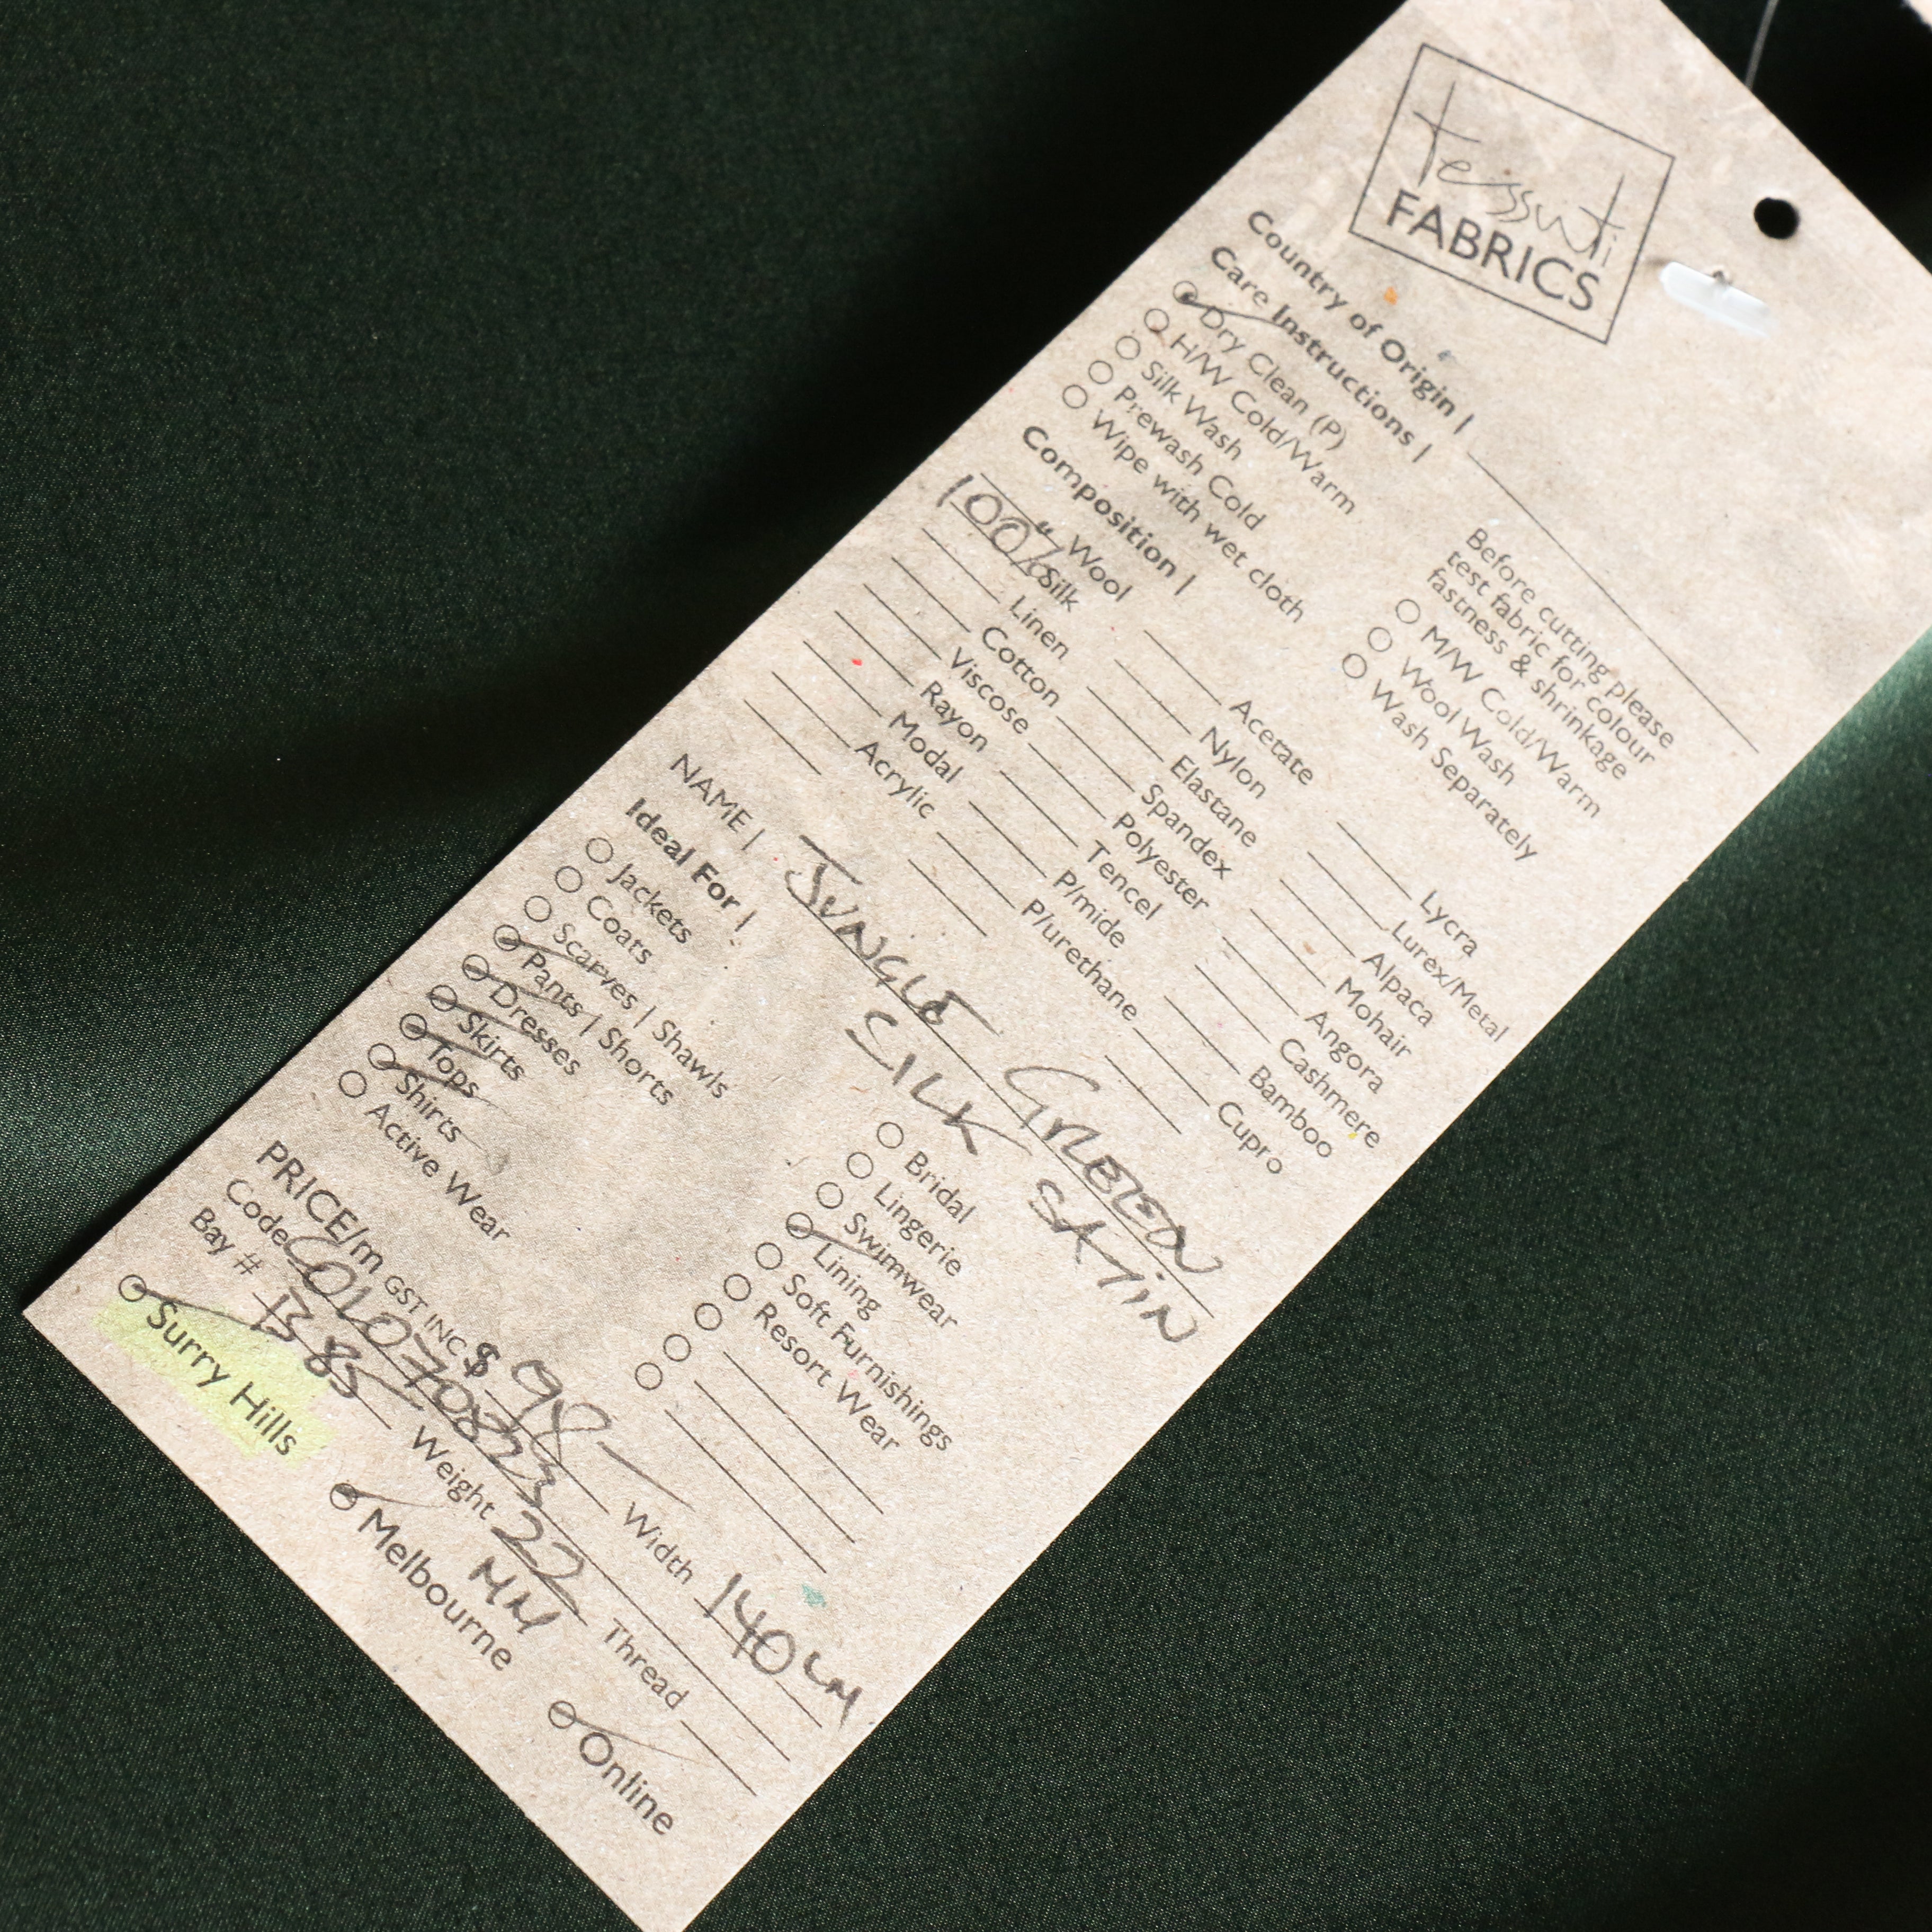 tessuti
FABRICS
Country of Origin |
Care Instructions |
Dry Clean (P)
H/W Cold/Warm
Silk Wash
Prewash Cold
Wipe with wet cloth
Before cutting please
test fabric for colour
fastness & shrinkage
M/W Cold/Warm
Wool Wash
Wash Separately
Composition |
Wool
100% Silk
Linen
Cotton
Viscose
Rayon
Modal
Acrylic
Acetate
Nylon
Elastane
Spandex
Polyester
Tencel
P/mide
P/urethane
Lycra
Lurex/Metal
Alpaca
Mohair
Angora
Cashmere
Bamboo
Cupro
NAME | JUNGLE GREEN
SILK SATIN
Ideal For |
Jackets
Coats
Scarves | Shawls
Pants | Shorts
Dresses
Skirts
Tops
Shirts
Active Wear
Bridal
Lingerie
Swimwear
Lining
Soft Furnishings
Resort Wear
PRICE/m GST INC $ 98- Width 140cm
Code C01070823 Thread
Bay # B85 Weight 22
MM
Surry Hills Melbourne Online